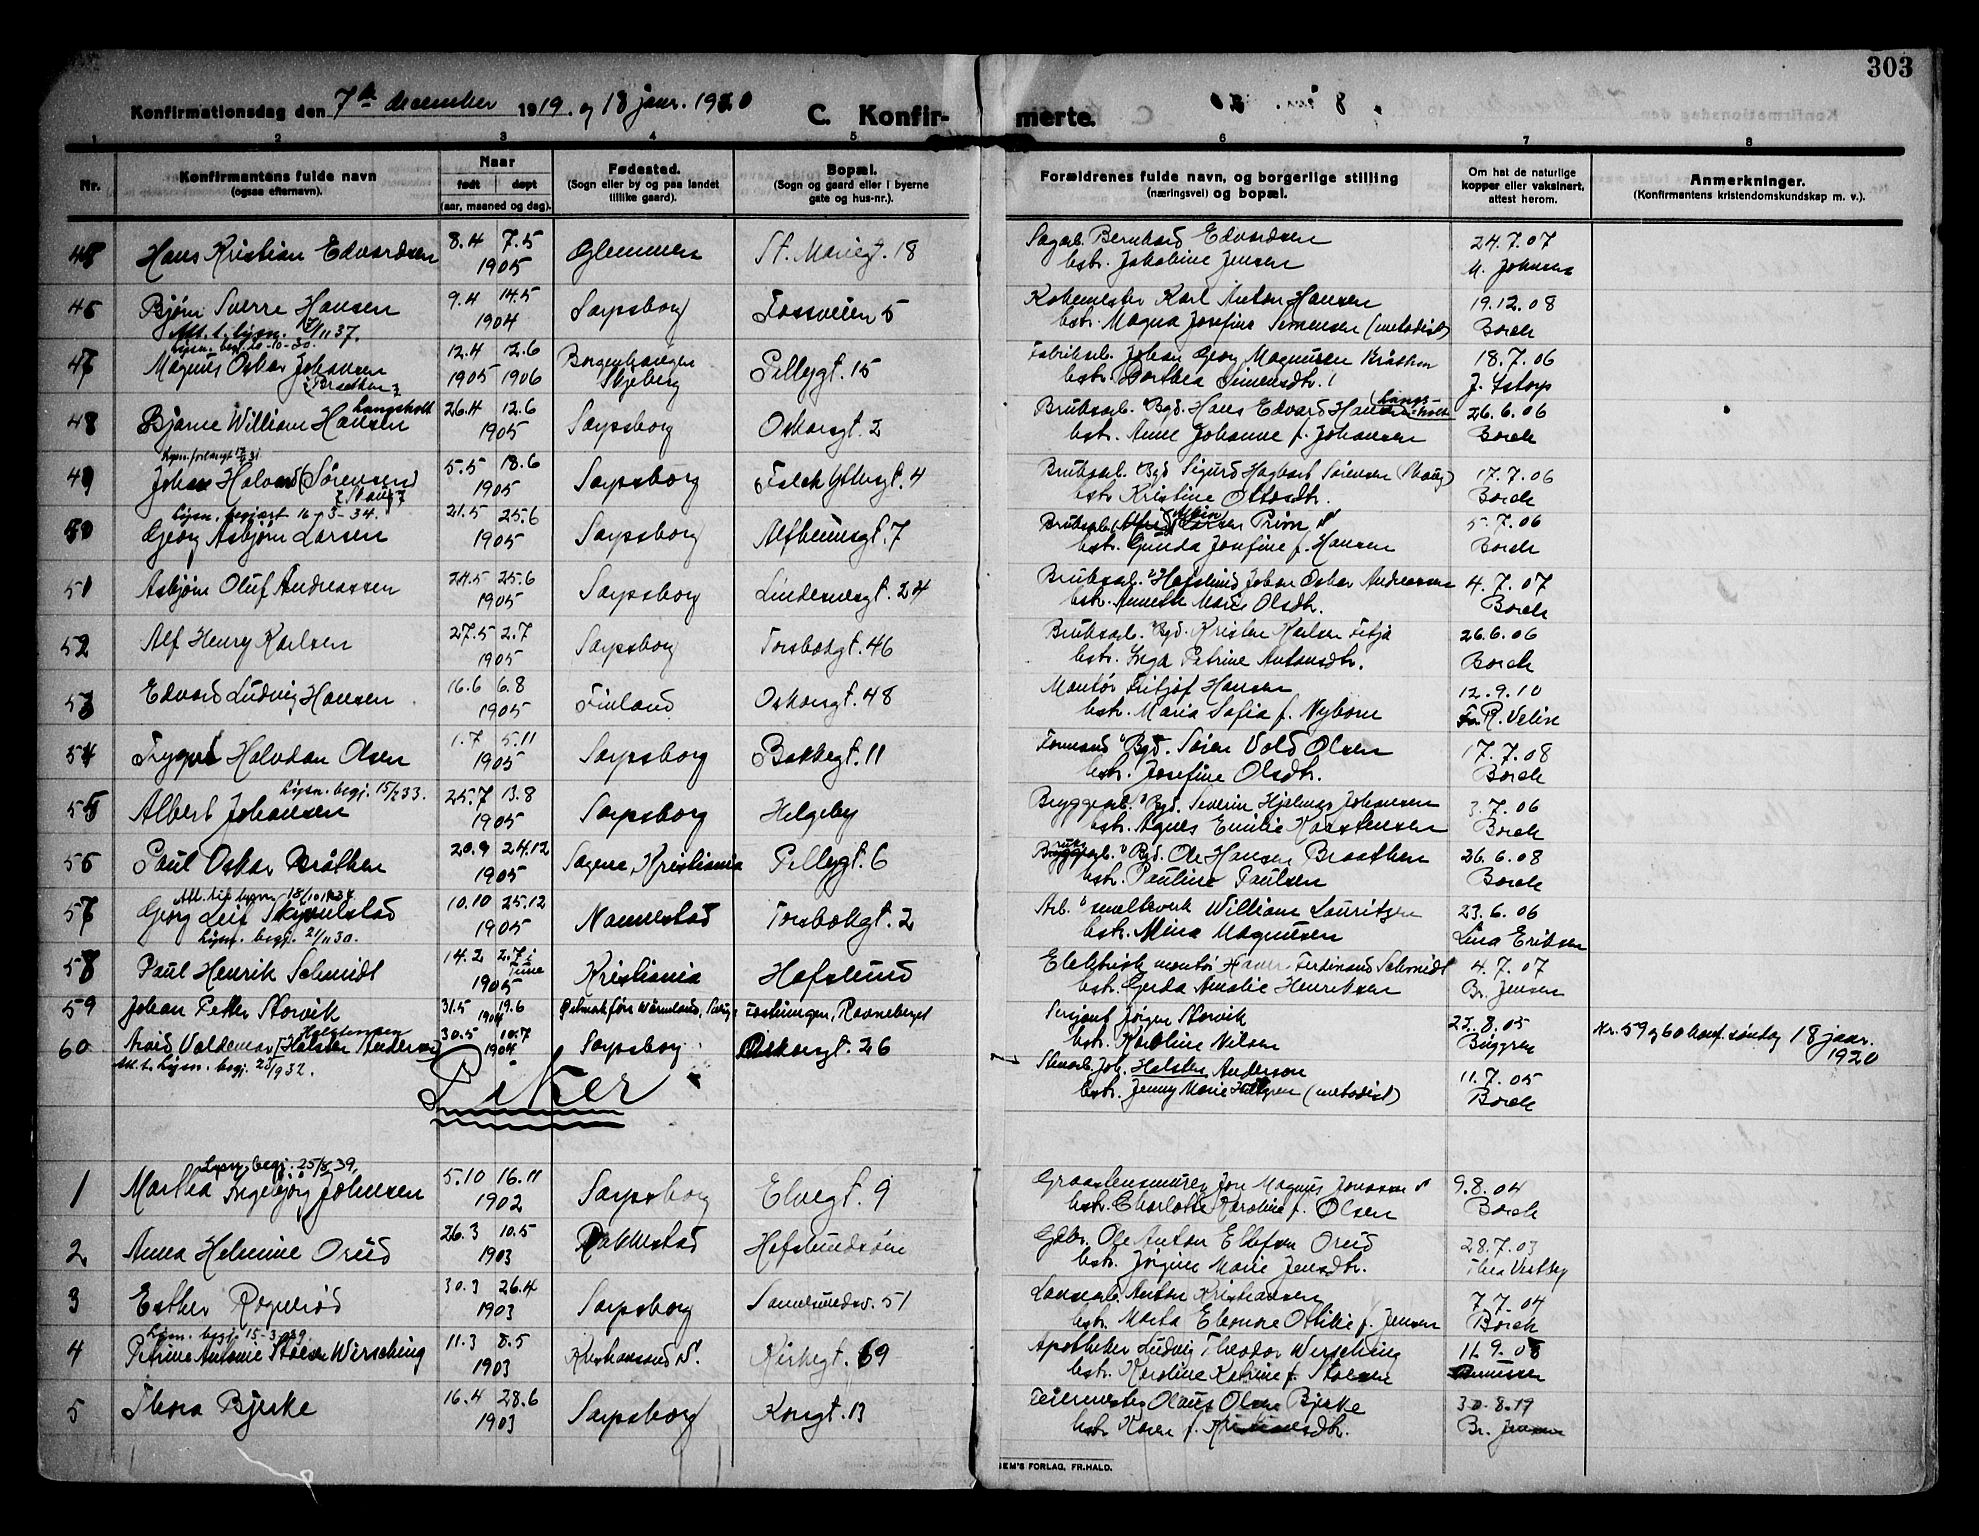 303
Konfirmationsdag den 7de december 1919 og 18 janr. 1920
C. Konfirmerte.
1 2 3 4 5 6 7 8
Nr.
Konfirmantens fulde navn
(ogsaa efternavn).
Naar
født døpt
(aar, maaned og dag).
Fødested.
(Sogn eller by og paa landet
tillike gaard).
Bopæl.
(Sogn og gaard eller i byerne
gate og hus-nr.).
Forældrenes fulde navn, og borgerlige stilling
(næringsvei) og bopæl.
Om hat de naturlige
kopper eller vaksinert,
attest herom.
Anmerkninger.
(Konfirmantens kristendomskundskap m. v.).
45 Hans Kristian Edvardsen 8.4 7.5 Glemmen St. Mariegt. 18 Sagarb. Bernhard Edvardsen 24.7.07
1905 hstr. Jakobine Jensen M. Johnsen
46 Bjørn Sverre Hansen 9.4 14.5 Sarpsborg Fossveien 5 Karl Anton Hansen 19.12.08
1904 hstr. Magna Josefine Simensen (metodist) Borch
Att. t. lysn. 37.
Lysn. begj. 20-10-30.
47 Magnus Oskar Johansen 12.4 12.6 Borgenhaugen Pellygt. 15 Fabrikarb. Johan Georg Magnusen Bråthen 18.7.06
[Braathen] 1905 1906 Skjeberg hstr. Dorthea Simensdtr. J. Istorp
48 Bjarne William Hansen Langsholt 26.4 12.6 Sarpsborg Oskarsgt. 2 Bruksarb. Bgd. Hans Edvard Hansen (Langsholt 26.6.06
1905 hstr. Anne Johanne f. Johansen Borch
49 Johan Halvard (Sørensen) 5.5 18.6 Sarpsborg Falch Yttersgt. 4 Bruksarb. Bgd Sigurd Hagbart Sørensen (Skaug) 17.7.06
[Skaug] 1905 hstr. Kristine Ottosdtr. Borch
Lysn. begjært 16-3-34.
50 Georg Asbjørn Larsen 21.5 25.6 Sarpsborg Alfheimsgt. 7 Bruksarb. Larsen 5.7.06
1905 hstr. Gunda Josefine f. Hansen Borch
51 Asbjørn Oluf Andreassen 24.5 25.6 Sarpsborg Lindemesgt. 24 Bruksarb. Hafslund Johan Oskar Andreassen 4.7.07
1905 hstr. Annette Marie Olsdtr. Borch
52 Alf Henry Karlsen 27.5 2.7 Sarpsborg Torsbekgt. 46 Bruksarb. Bgd. Kristen Karlsen Fitja 26.6.06
1905 hstr. Inga Petrine Antonsdtr. Borch
53 Edvard Ludvig Hansen 16.6 6.8 Finland Oskarsgt. 48 Montør Fritjof Hansen 12.9.10
1905 hstr. Maria Sofia f. Nybom Fr. R. Velin
54 Trygve Halvdan Olsen 1.7 5.11 Sarpsborg Bakkegt. 11 Formand Bgd. Søren Vold Olsen 17.7.08
1905 hstr. Josefine Olsdtr. Borch
Lysn. begj. 15/2 33.
55 Albert Johansen 25.7 13.8 Sarpsborg Helgeby Bryggearb. Bgd. Severin Hjalmar Johansen 3.7.06
1905 hstr. Agnes Emilie Karstensen Borch
56 Paul Oskar Bråthen 20.9 24.12 Sagene, Kristiania Pellygt. 6 Bruksarb. Bgd. Ole Hansen Braathen 26.6.08
1905 hstr. Pauline Paulsen Borch
Att. til lysn. 18/10 1934
57 Georg Leif Skymelstad 10.10 25.12 Nannestad Torsbekgt. 2 Arb. smelteverk William Lauritzen 23.6.06
Lysn. begj. 21/11 30. 1905 hstr. Mina Magnusen Lina Eriksen
58 Paul Henrik Schmidt 14.2 2.7 i Tune Kristiania Hafslund Elektrisk montør Hans Ferdinand Schmidt 4.7.07
1905 hstr. Gerda Amalie Henriksen Br. Jensen
59 Johan Petter Storvik 31.5 19.6 Östmarksförs Wärmland, Sverig. Fastningen, Ravneberget Sersjant Jørgen Storvik 25.8.05
1904 hstr. Karoline Nilsen Buggren
Nr. 59 og 60 konf. søndag 18 jaar. 1920
60 Arvid Valdemar [Holsten Andersen] Holstensen 30.5 10.7 Sarpsborg Oskarsgt. 26 Joh. Holsten Anderson 11.7.05
Att. t. Lysn. begj. 1932. 1904 hstr. Jenny Marie Hultgren (metodist) Borch
Piker
Lysn. begj. 25/8 39.
1 Martha Ingebjørg Johnsen 5.10 16.11 Sarpsborg Elvegt. 9 Graastensmurer Jon Magnus Jonassen 9.8.04
1902 hstr. Charlotte Karoline f. Olsen Borch
2 Anna Helmine Orud 26.3 10.5 Rakkestad Hafslundsøen Gdbr. Ole Anton Ellefsen Orud 28.7.03
1903 hstr. Jørgine Marie Jensdtr. Thea Vestby
3 Esther Rognerød 30.3 26.4 Sarpsborg Sandesundsv. 51 Anton Kristiansen 7.7.04
1903 hstr. Marta Eleonore Ottilie f. Jensen Borch
Lysn. begj. 15-3-39.
4 Petrine Antonie Stoesen Wirsching 11.3 8.5 Kristiansund N. Kirkegt. 69 Apotheker Ludvig Theodor Wirsching 11.9.08
1903 hstr. Karoline Katrine f. Stoesen
5 Thora Bjerke 16.4 28.6 Sarpsborg Kongt. 13 Feiermester Olaus Olsen Bjerke 30.8.19
1903 hstr. Karen f. Kristiansdtr. Br. Jensen
EM'S FORLAG, FR.HALD.